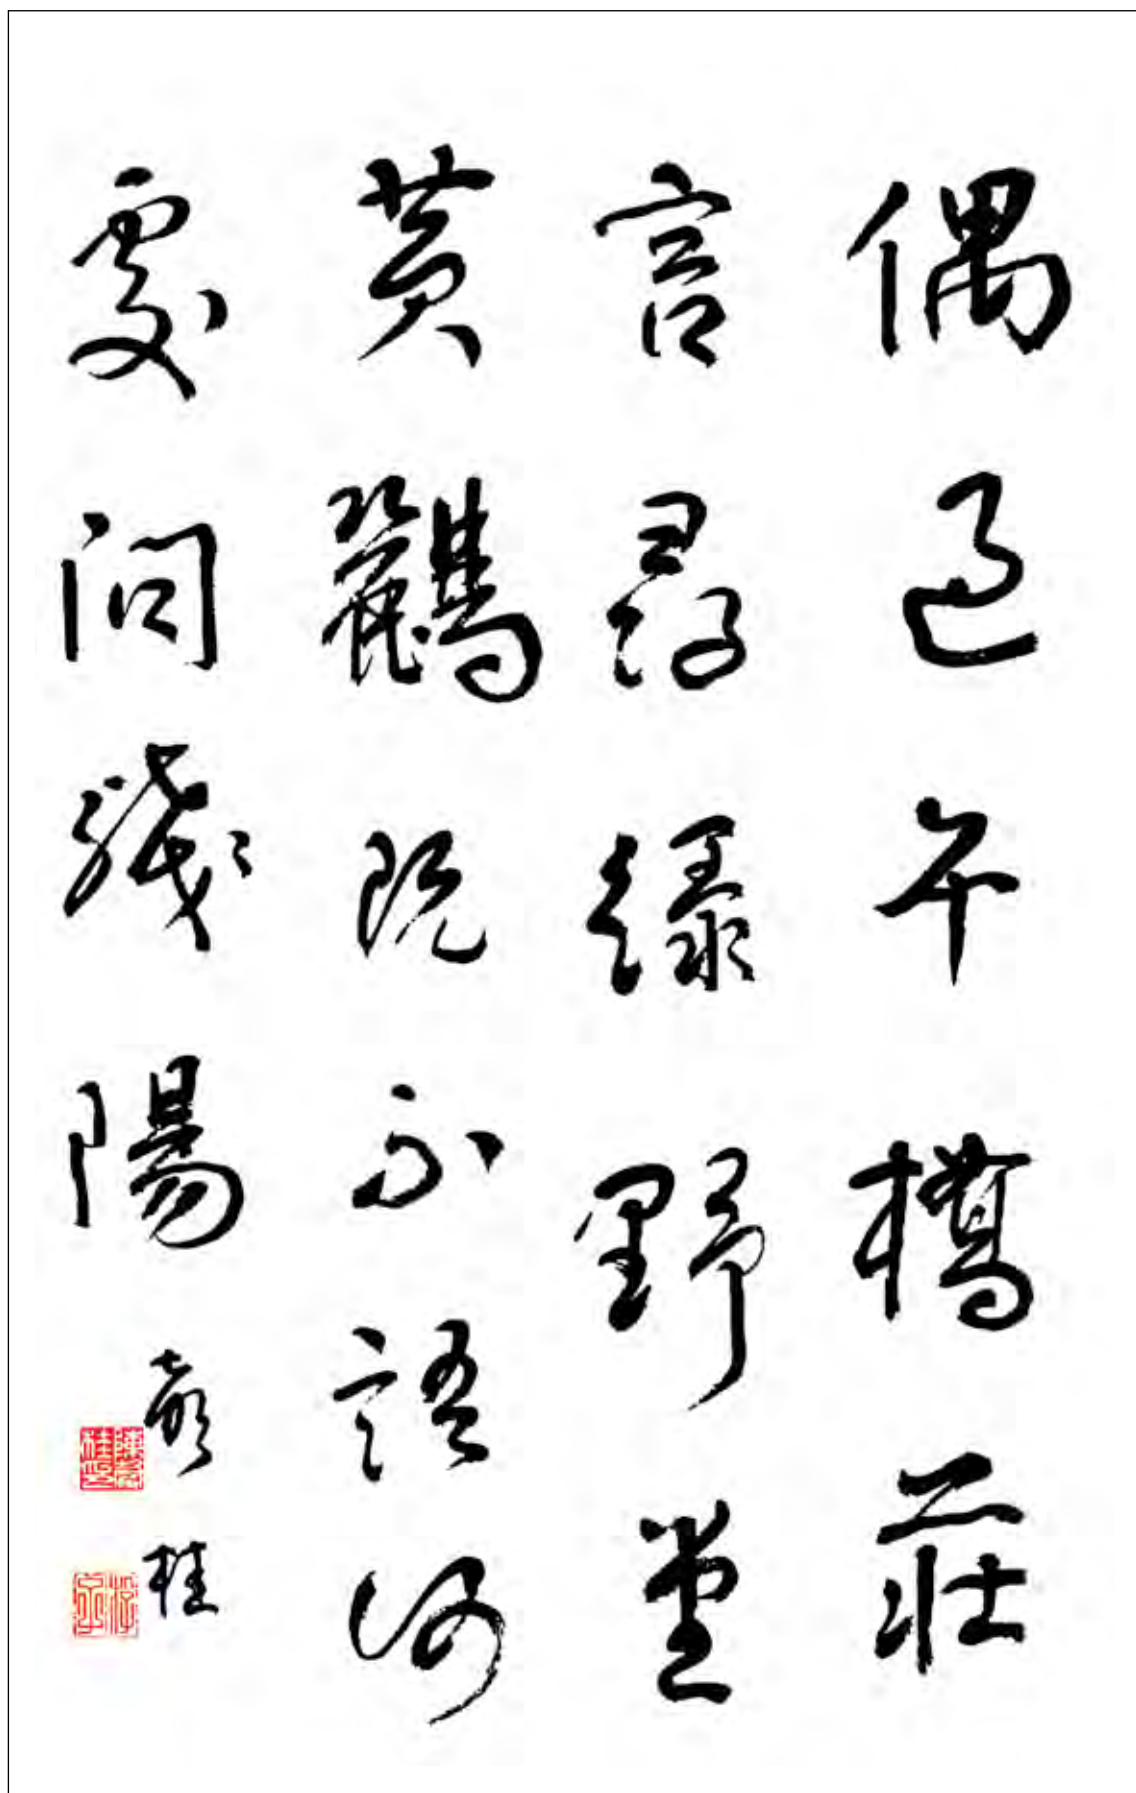 偶過午橋莊
言尋綠野堂
黃鸝既不語何
處問殘陽
嘉桂